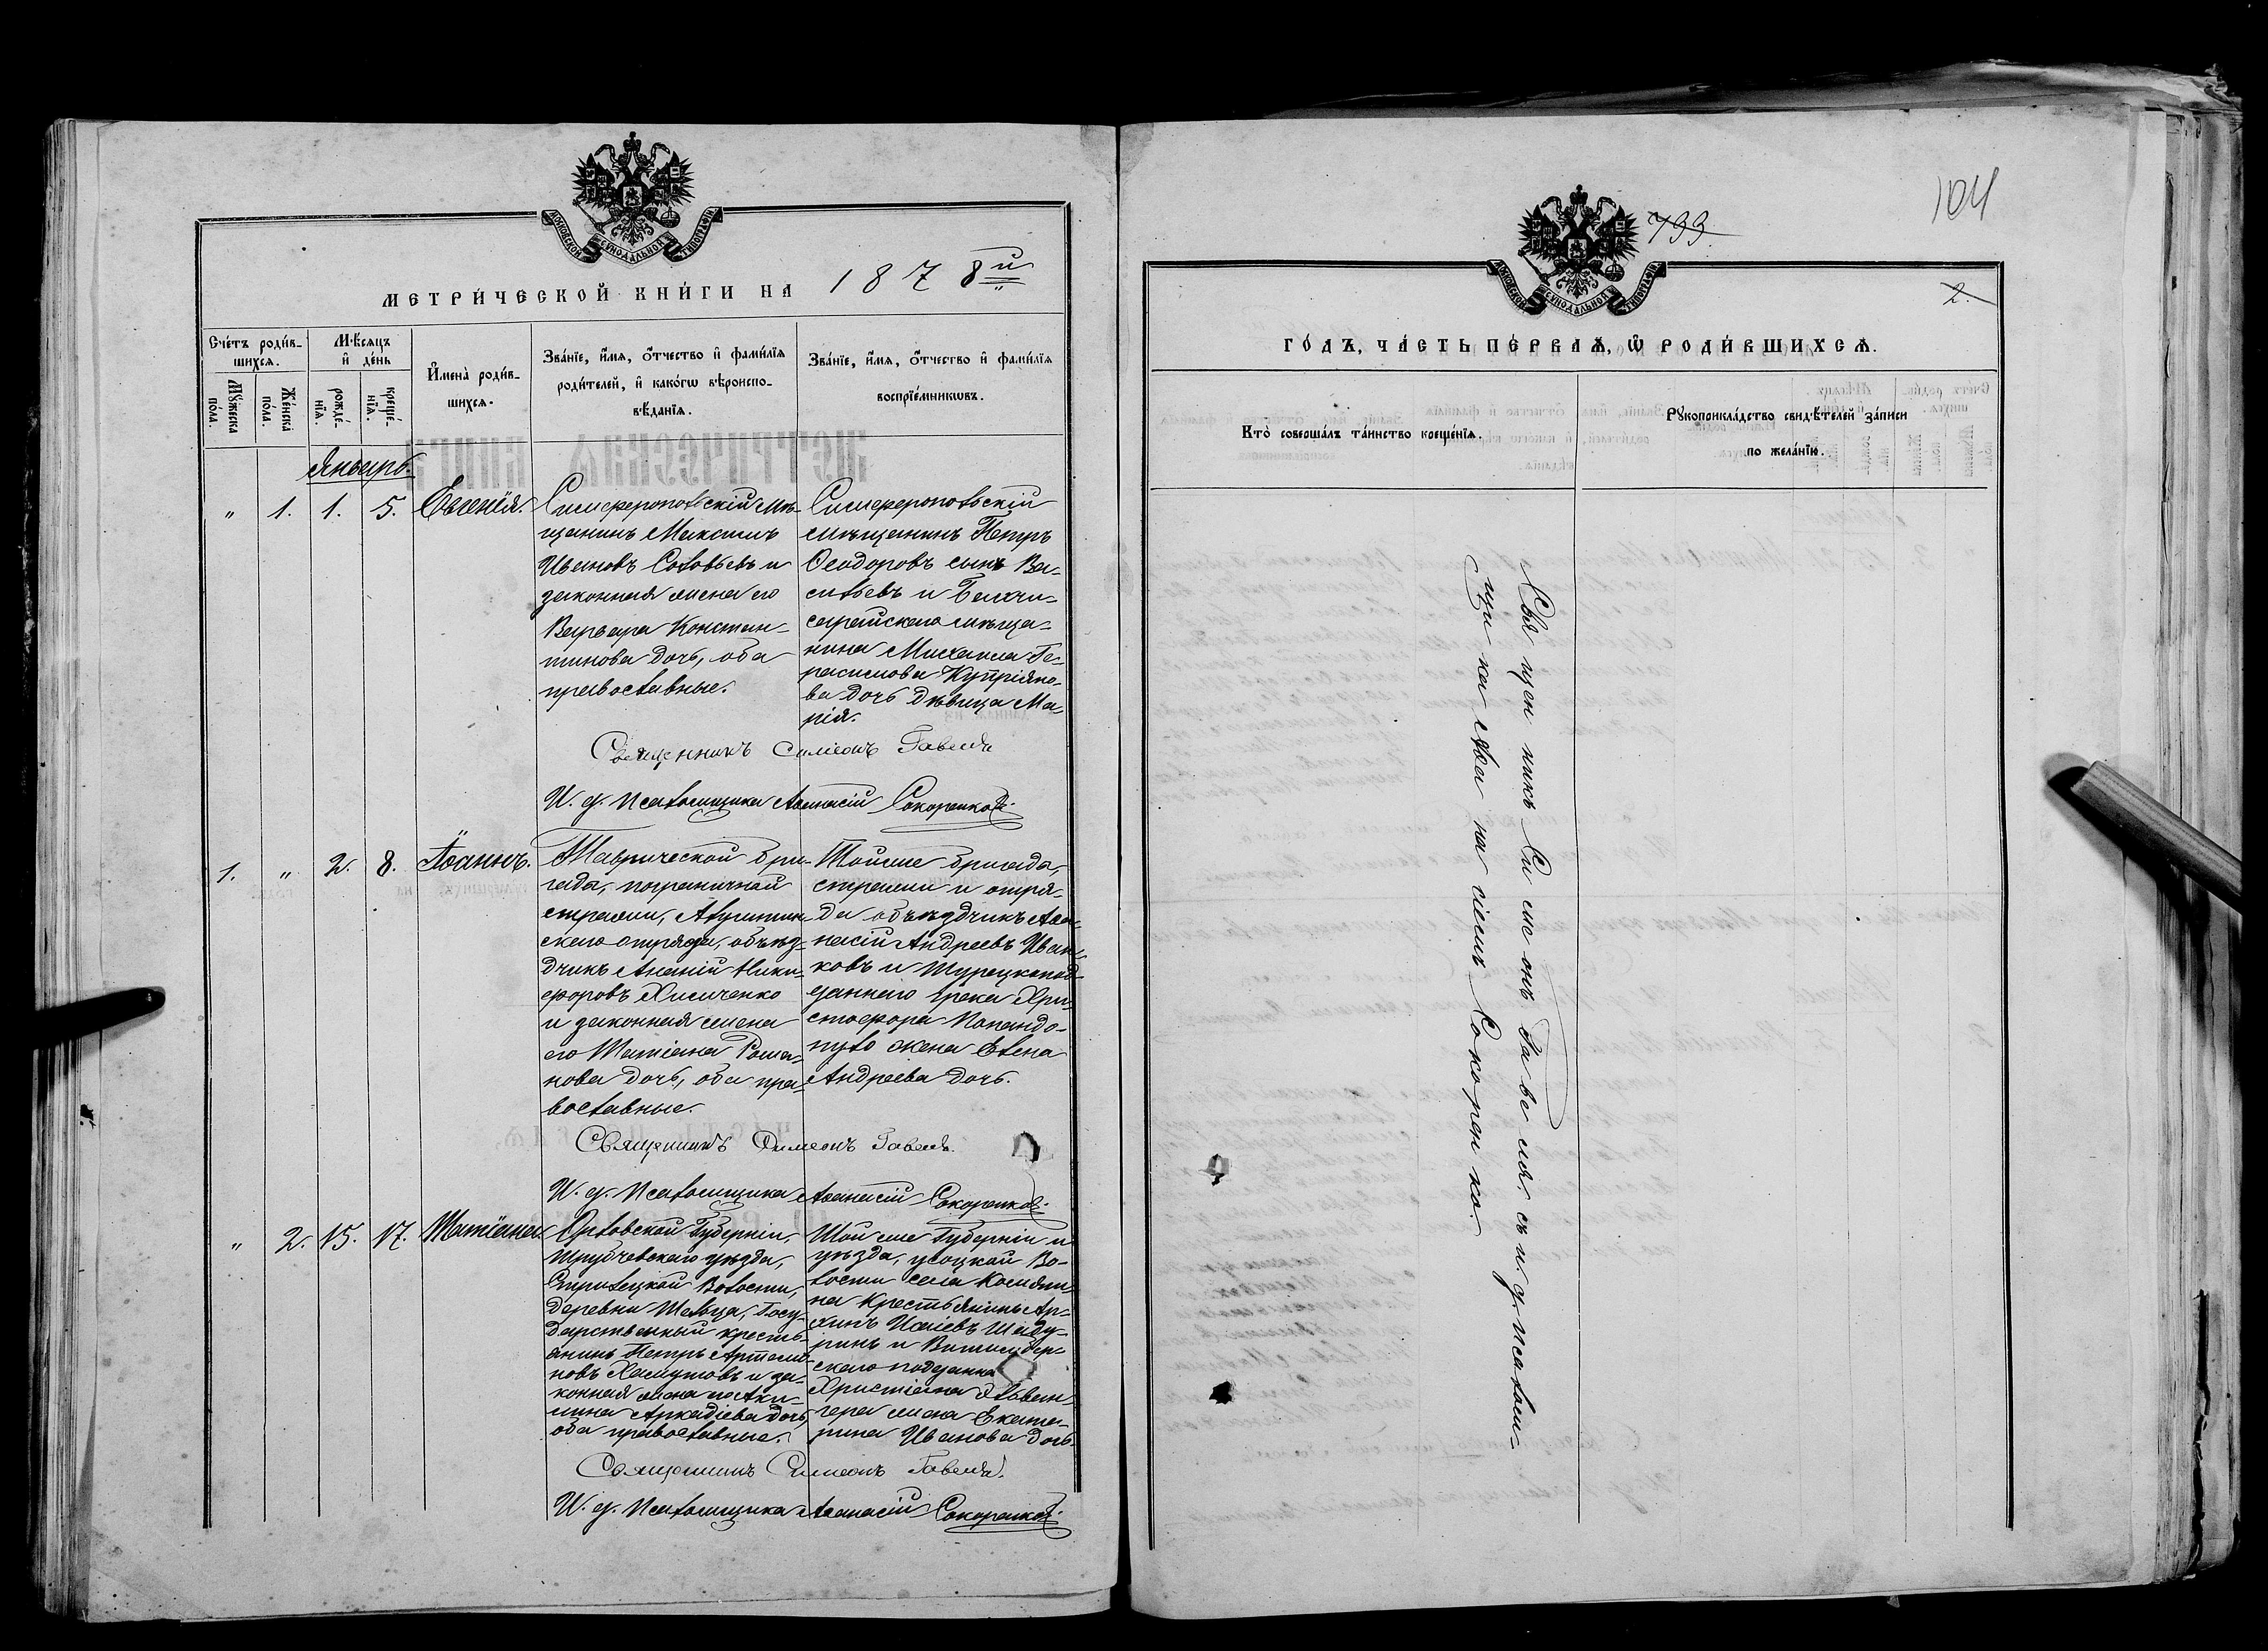 МОСКОВСКОЙ СУНОДАЛЬНОЙ ТИПОГРАФІИ
МЕТРИ́ЧЕСКОЙ КНИ́ГИ НА 1878й
Сче́тъ роди́в-
шихсѧ.
Мꙋ́жеска
по́ла.
Же́нска
по́ла.
Мѣ́сѧцъ
и҆ де́нь
рожде́-
нїѧ.
креще́-
нїѧ.
И҆мена̀ роди́в-
шихсѧ.
Зва́нїе, и҆́мѧ, ѻ҆́тчество и҆ фамі́лїѧ
роди́телей, и҆ како́гѡ вѣроиспо-
вѣ́данїѧ.
Зва́нїе, и҆́мѧ, ѻ҆́тчество и҆ фамі́лїѧ
воспрїе́мникѡвъ.
Январь.
" 1. 1. 5. Евгенія.
Симферопольскій мѣ-
щанинъ Максимъ
Ивановъ Соловьевъ и
законная жена его
Варвара Констан-
тинова дочь, оба
православные.
Симферопольскій
мѣщанинъ Петръ
Ѳеодоровъ сынъ Ва-
сильевъ и Бахчи-
сарайскаго мѣща-
нина Михаила Ге-
расимова Купріяно-
ва дочь дѣвица Ма-
рія.
Священникъ Симеонъ Гавеля
И. д. Псаломщика Аѳанасій Сокоренко
1. " 2. 8. Іоаннъ.
Таврической бри-
гады, пограничной
стражи, Алуштин-
скаго отряда, объѣз-
дчикъ Ананій Ники-
форовъ Химиченко
и законная жена
его Татіана Рома-
нова дочь, оба пра-
вославные.
Тойже бригады,
стражи и отря-
да объѣздчикъ Аѳа-
насій Андреевъ Иван-
ковъ и Турецкопод-
даннаго грека Хри-
стофора Попандо-
пуло жена Елена
Андреева дочь.
Священникъ Симеонъ Гавеля.
И. д. Псаломщика Аѳанасій Сокоренко
" 2. 15. 17. Татіана.
Орловской Губерніи,
Трубчевскаго уѣзда,
Волости,
деревни Госу-
дарственный кресть-
янинъ Петръ Артемо-
новъ Хомутовъ и за-
конная жена его Аки-
лина Аркадіева дочь,
оба православные.
Той же Губерніи и
уѣзда, Усоцкой Во-
лости села
на крестьянинъ Ар-
хипъ Исаіевъ
ринъ и Виртембер-
скаго подданна
Христіана
гера жена Екате-
рина Иванова дочь.
Священникъ Симеонъ Гавеля.
И. д. Псаломщика Аѳанасій Сокоренко
104
799.
2.
МОСКОВСКОЙ СУНОДАЛЬНОЙ ТИПОГРАФІИ
ГО́ДЪ, ЧА́СТЬ ПЕ́РВАѦ, Ѡ҆ РОДИ́ВШИХСѦ.
Кто̀ соверша́лъ та́инство креще́нїѧ.
Рꙋкоприкла́дство свидѣ́телей за́писи
по жела́нїю.
Священникъ Симеонъ Гавеля, съ и. д. псалом-
щика Аѳанасіемъ Сокоренко.